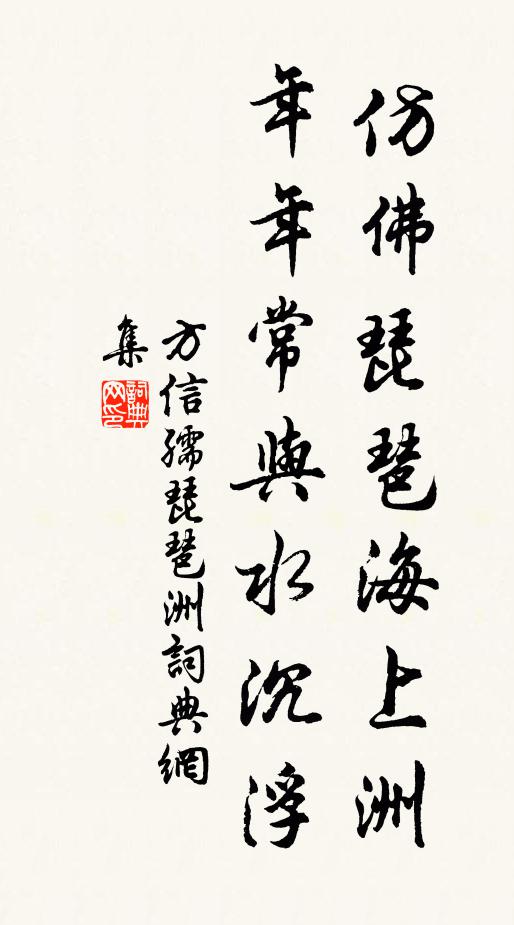 仿佛琵琶海上洲
年年常與水沉浮
方信孺琵琶洲詞典網
集
詞典
网印